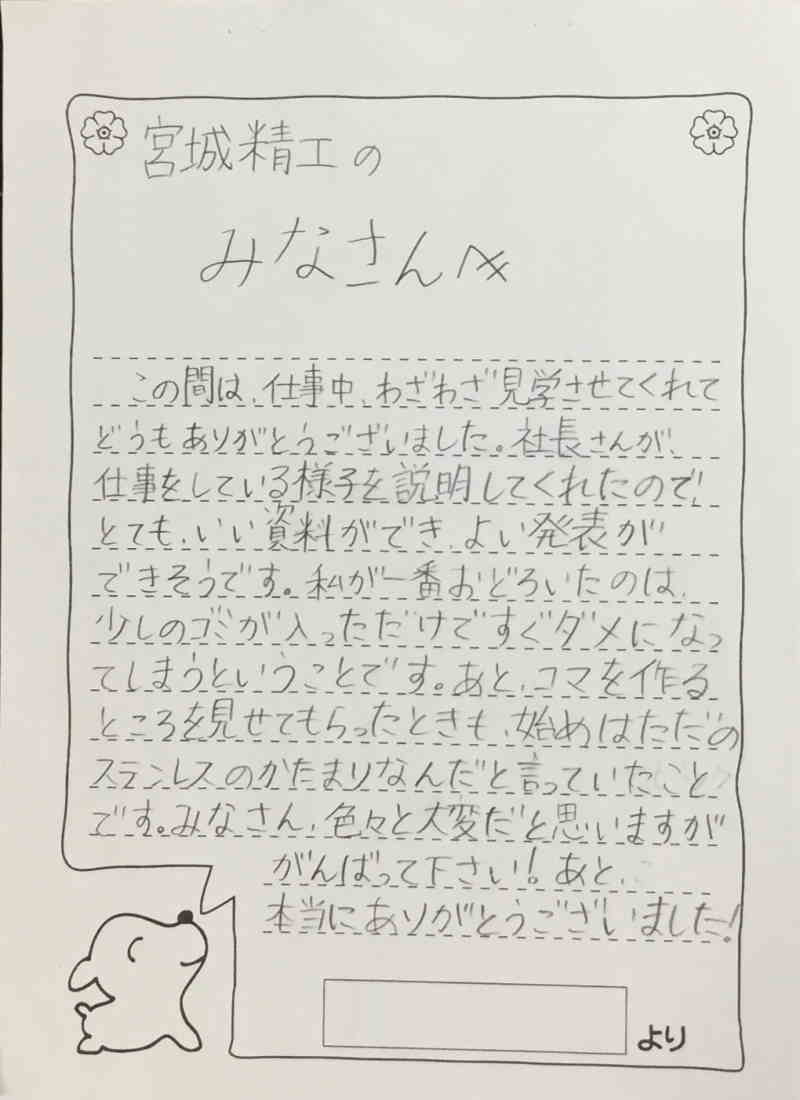 宮城精工の
みなさんへ
この間は、仕事中、わざわざ見学させてくれて
どうもありがとうございました。社長さんが、
仕事をしている様子を説明してくれたので、
とても、いい資料ができ、よい発表が
できそうです。私が一番おどろいたのは、
少しのゴミが入っただけですぐダメになっ
てしまうということです。あと、コマを作る
ところを見せてもらったときも、始めはただの
ステンレスのかたまりなんだと言っていたこと
です。みなさん、色々と大変だと思いますが
がんばって下さい!あと、
本当にありがとうございました!
より